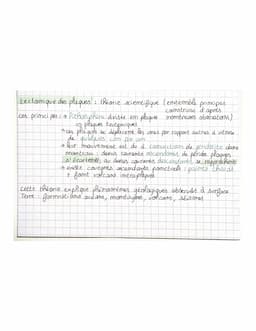 tectonique des plaques : théorie scientifique (ensemble principes
construits d'après
ces principes : → lithosphère divisée en plaques nombreuses observations)
→ plaques tectoniques
→ ces plaques se déplacent les unes par rapport autres à vitesse
de quelques cm par an
→ leur mouvement est dû à convections de péridotite dans
manteau : dans courants ascendants de péridotite plaques
s'écartent, au dessus courants descendants se rapprochent
→ existe courants ascendants ponctuels : points chauds
→ font volcans intraplaques
cette théorie explique phénomènes géologiques observés à surface
Terre : formation océans, montagnes, volcans, séismes